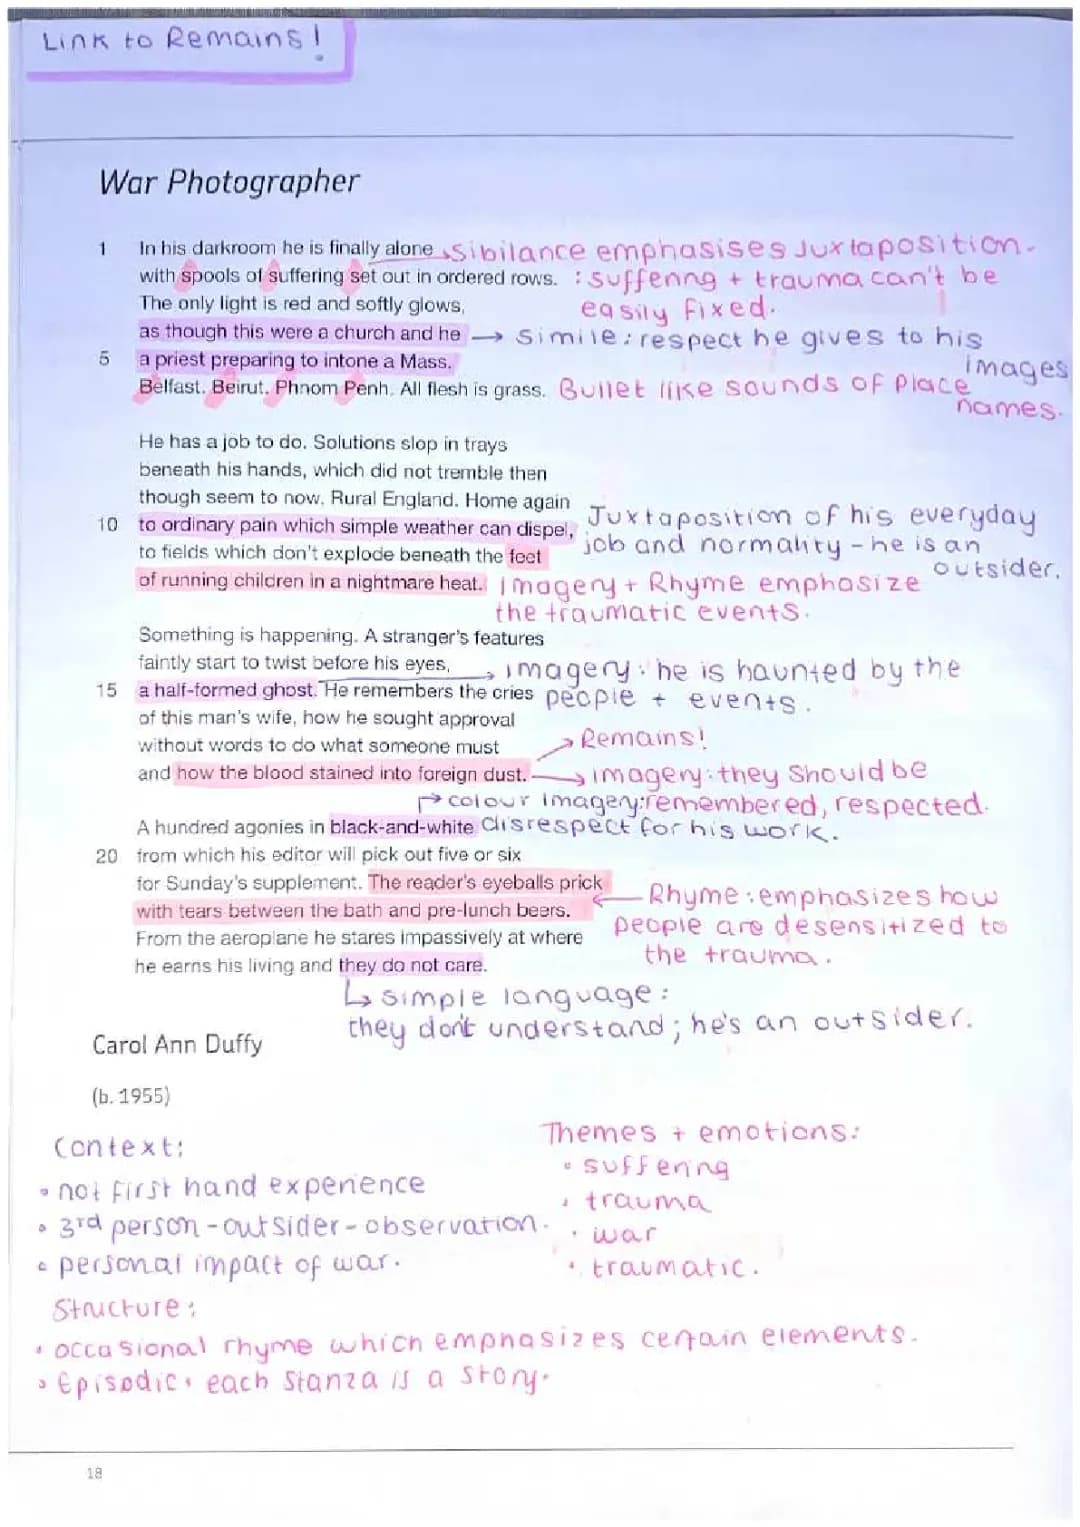 Link to Remains!
War Photographer
1 In his darkroom he is finally alone sibilance emphasises Juxtaposition.
with spools of suffering set out in ordered rows. : suffering + trauma can't be
The only light is red and softly glows, easily fixed.
as though this were a church and he → Simile: respect he gives to his
5 a priest preparing to intone a Mass. images
Belfast. Beirut. Phnom Penh. All flesh is grass. Bullet like sounds of place
names.
He has a job to do. Solutions slop in trays
beneath his hands, which did not tremble then
though seem to now. Rural England. Home again
10 to ordinary pain which simple weather can dispel, Juxtaposition of his everyday
to fields which don't explode beneath the feet job and normality - he is an
outsider.
of running children in a nightmare heat. Imagery + Rhyme emphasize
the traumatic events.
Something is happening. A stranger's features
faintly start to twist before his eyes, → imagery: he is haunted by the
15 a half-formed ghost. He remembers the cries people + events.
of this man's wife, how he sought approval
without words to do what someone must → Remains!
and how the blood stained into foreign dust. → imagery: they should be
→ colour imagery: remembered, respected.
A hundred agonies in black-and-white disrespect for his work.
20 from which his editor will pick out five or six
for Sunday's supplement. The reader's eyeballs prick
with tears between the bath and pre-lunch beers. ← Rhyme: emphasizes how
From the aeroplane he stares impassively at where people are desensitized to
he earns his living and they do not care. the trauma.
↳ simple language:
they don't understand; he's an outsider.
Carol Ann Duffy
(b. 1955)
Context:
• not first hand experience
• 3rd person - outsider - observation.
• personal impact of war.
Themes + emotions:
• suffering
• trauma
• war
• traumatic.
Structure:
• occasional rhyme which emphasizes certain elements.
• Episodic, each stanza is a story.
18